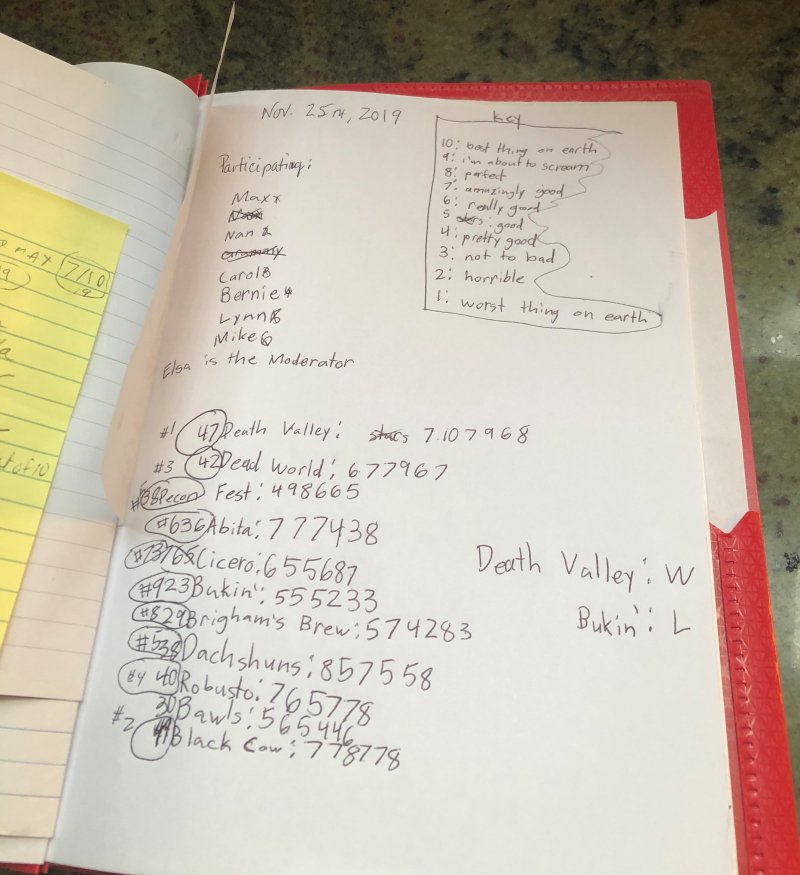 Nov. 25TH, 2019
Participating:
Maxx
Nan
Carol
Bernie
Lynn
Mike
Elsa is the Moderator
key
10: best thing on earth
9: i'm about to scream
8: perfect
7: amazingly good
6: really good
5 stars: good
4: pretty good
3: not to bad
2: horrible
1: worst thing on earth
MAX 7/10
#1 47 Death Valley: stars 7.107968
#3 42 Dead World; 677967
Pecan Fest: 498665
#636 Abita: 777438
Cicero: 655687
#923 Bukin': 555233
#829 Brigham's Brew: 574283
#538 Dachshuns: 857558
#4 40 Robusto: 765778
30 Bawls: 565446
#2 Black Cow: 778778
Death Valley: W
Bukin': L
of 10